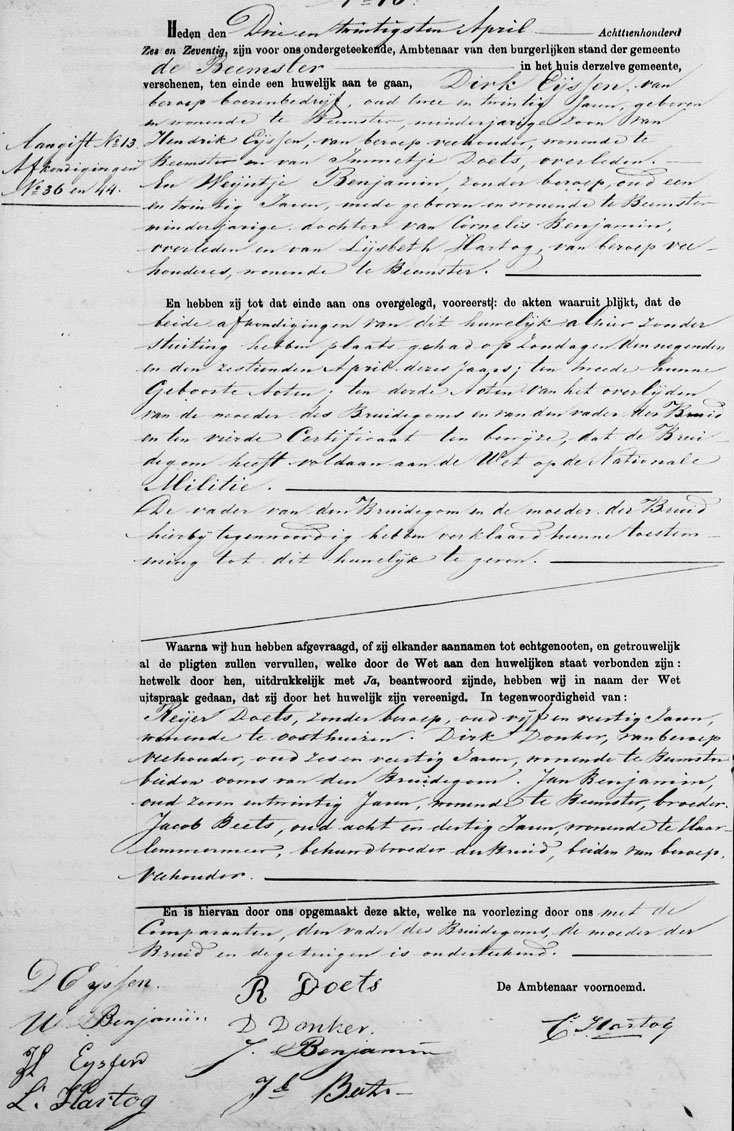 Heden den Drie en twintigsten April Achttienhonderd
Zes en Zeventig, zijn voor ons ondergeteekende, Ambtenaar van den burgerlijken stand der gemeente
de Beemster in het huis derzelve gemeente,
verschenen, ten einde een huwelijk aan te gaan, Dirk Eijssen, van
beroep boerenbedrijf, oud twee en twintig Jaren, geboren
en wonende te Beemster, minderjarige zoon van
Hendrik Eijssen, van beroep veehouder, wonende te
Beemster en van Immetje Doets, overleden.
En Weijntje Benjamin, zonder beroep, oud een
en twintig Jaren, mede geboren en wonende te Beemster
minderjarige dochter van Cornelis Benjamin,
overleden en van Lijsbeth Hartog, van beroep vee-
houderes, wonende te Beemster.
Aangift No 13.
Afkondigingen
No 36 en 44.
En hebben zij tot dat einde aan ons overgelegd, vooreerst: de akten waaruit blijkt, dat de
beide afkondigingen van dit huwelijk alhier zonder
stuiting hebben plaats gehad op Zondagen den negenden
en den zestienden April dezes jaars; ten tweede hunne
Geboorte Acten; ten derde Acten van het overlijden
van de moeder des Bruidegoms en van den vader der Bruid
en ten vierde Certificaat ten bewijze, dat de Brui-
degom heeft voldaan aan de Wet op de Nationale
Militie.
De vader van den Bruidegom en de moeder der Bruid
hierbij tegenwoordig hebben verklaard hunne toestem-
ming tot dit huwelijk te geven.
Waarna wij hun hebben afgevraagd, of zij elkander aannamen tot echtgenooten, en getrouwelijk
al de pligten zullen vervullen, welke door de Wet aan den huwelijken staat verbonden zijn:
hetwelk door hen, uitdrukkelijk met Ja, beantwoord zijnde, hebben wij in naam der Wet
uitspraak gedaan, dat zij door het huwelijk zijn vereenigd. In tegenwoordigheid van:
Reijer Doets, zonder beroep, oud vijf en veertig Jaren,
wonende te Oosthuizen. Dirk Donker, van beroep
veehouder, oud zes en veertig Jaren, wonende te Beemster
beiden ooms van den Bruidegom Jan Benjamin,
oud zeven en twintig Jaren, wonende te Beemster, broeder.
Jacob Beets, oud acht en dertig Jaren, wonende te Haar-
lemmermeer, behuwdbroeder der Bruid, beiden van beroep,
veehouder.
En is hiervan door ons opgemaakt deze akte, welke na voorlezing door ons met de
Comparanten, den vader des Bruidegoms, de moeder der
Bruid en de getuigen is onderteekend.
D Eyssen. R Doets De Ambtenaar voornoemd.
W Benjamin D Donker. C Hartog
H Eyssen J. Benjamin
L. Hartog Jb Beets